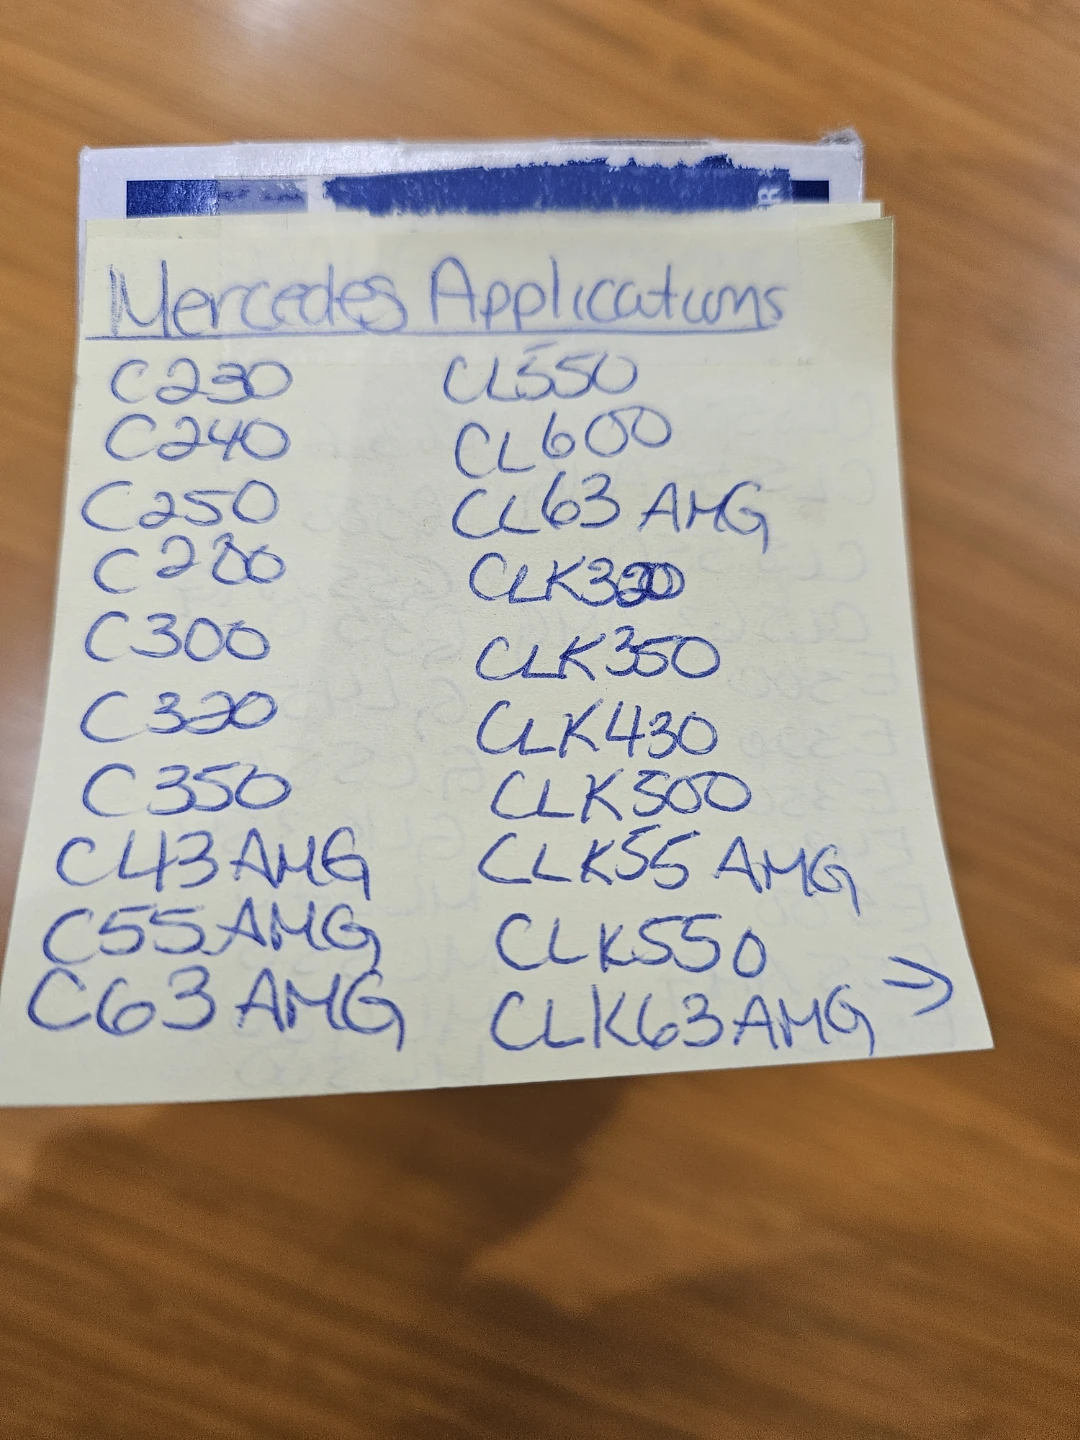 R
Mercedes Applications
C230
C240
C250
C280
C300
C320
C350
C43 AMG
C55 AMG
C63 AMG
CL550
CL600
CL63 AMG
CLK320
CLK350
CLK430
CLK500
CLK55 AMG
CLK550
CLK63 AMG →